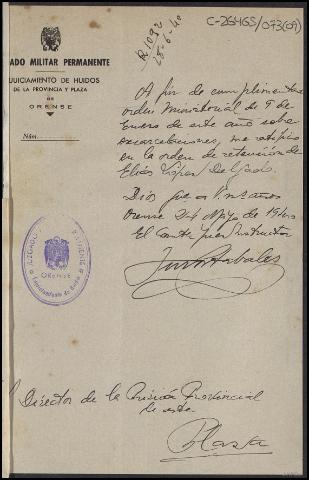 C-26465/073(09)
R 1092
28-6-40
ADO MILITAR PERMANENTE
JUICIAMIENTO DE HUIDOS
DE LA PROVINCIA Y PLAZA
DE
ORENSE
Núm.
A fin de cumplimentar
orden Ministerial de 9 de
Enero de este año sobre
excarcelaciones, me ratifico
en la orden de retención de
Elías López Delgado.
Dios gue a V. ms años
Orense 24 Mayo de 1940
El Comte Juez Instructor
JUZGADO MILITAR PERMANENTE
ORENSE
Enjuiciamiento de Huidos
Director de la Prisión Provincial
de esta
Plaza